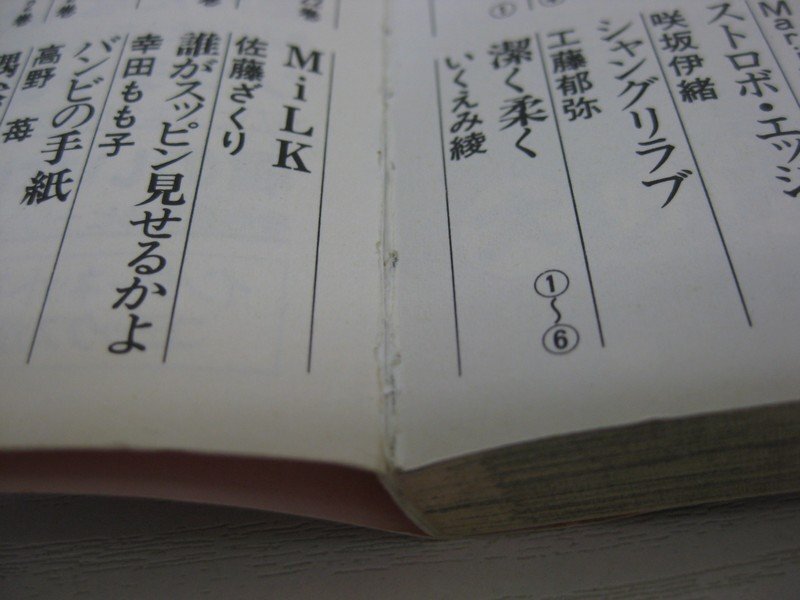 ストロボ・エッジ
咲坂伊緒
シャングリラブ
工藤郁弥
潔く柔く ①〜⑥
いくえみ綾
MiLK
佐藤ざくり
誰がスッピン見せるかよ
幸田もも子
バンビの手紙
高野 苺